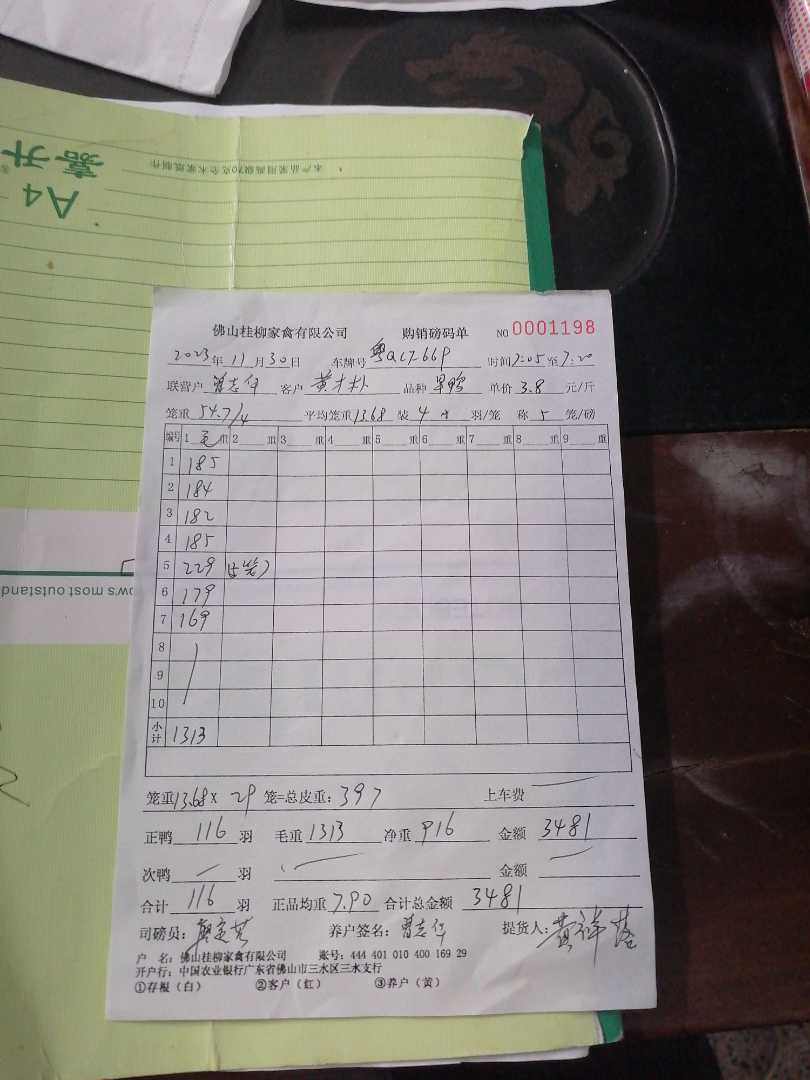 嘉升
A4
本产品采用高级70克全木浆纸制作
ow's most outstand
佛山桂柳家禽有限公司 购销磅码单 NO 0001198
2023年11月30日 车牌号 时间7:05至7:20
联营户 曾志华 客户 黄才朴 品种 单价 3.8 元/斤
笼重 54.7/4 平均笼重13.68 装 4 羽/笼 称 5 笼/磅
编号 1 毛重 2 重 3 重 4 重 5 重 6 重 7 重 8 重 9 重
1 185
2 184
3 182
4 185
5 229 (5笼)
6 179
7 169
8
9
10
小计 1313
笼重13.68 x 29 笼=总皮重: 397 上车费
正鸭 116 羽 毛重 1313 净重 916 金额 3481
次鸭 羽 金额
合计 116 羽 正品均重 7.90 合计总金额 3481
司磅员: 养户签名: 曾志华 提货人: 黄祥
户 名: 佛山桂柳家禽有限公司 账号: 444 401 010 400 169 29
开户行: 中国农业银行广东省佛山市三水区三水支行
①存根(白) ②客户(红) ③养户(黄)